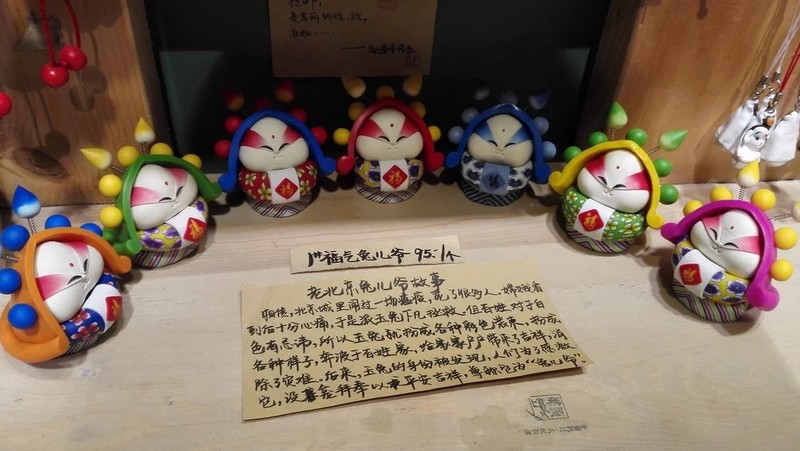 福
福
福
福气兔儿爷 95-/个
老北京兔儿爷故事
相传，北京城里闹过一场瘟疫，死了很多人，嫦娥看
到后十分心痛，于是派玉兔下凡拯救，但百姓对于白
色有忌讳，所以玉兔就扮成各种颜色装束，扮成
各种样子，奔波于百姓家，给家家户户带来了吉祥，消
除了灾难。后来，玉兔的身份被发现，人们为了感激
它，设龛拜奉以求平安吉祥，尊称它为“兔儿爷”